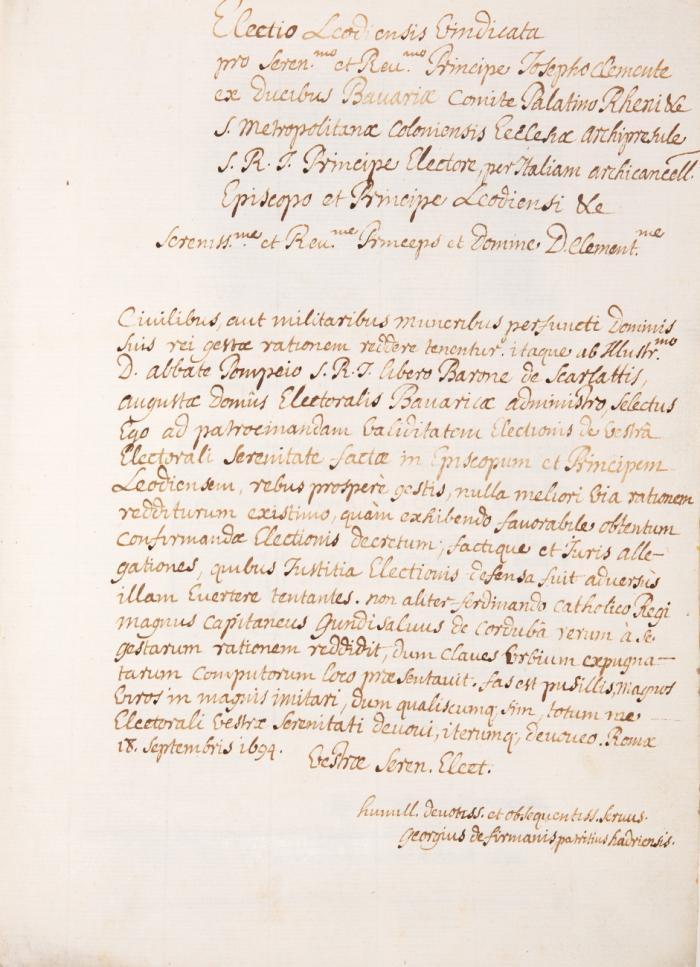 Electio Leodiensis Vindicata
pro Seren.mo et Reu.mo Principe Josepho Clemente
ex Ducibus Bauariæ Comite Palatino Rheni &c
S. Metropolitanæ Coloniensis Ecclesiæ Archipresule
S. R. I. Principe Electore, per Italiam archicancell.
Episcopo et Principe Leodiensi &c
Sereniss.me et Reu.me Princeps et Domine D. Clement.me
Civilibus, aut militaribus muneribus perfuncti Dominis
suis rei gestæ rationem reddere tenentur. itaque ab Illustr.mo
D. abbate Pompeio S. R. I. libero Barone de Scarlattis,
augustæ domûs Electoralis Bauaricæ administro selectus
Ego ad patrocinandam validitatem Electionis de vestrâ
Electorali Serenitate factæ in Episcopum et Principem
Leodiensem, rebus prosperè gestis, nulla meliori via rationem
redditurum existimo, quàm exhibendo favorabile obtentum
confirmandæ Electionis decretum; factique et Iuris alle-
gationes, quibus Iustitia Electionis defensa fuit adversùs
illam Evertere tentantes. non aliter ferdinando catholico Regi
magnus capitaneus Gundisaluus de Cordubâ rerum à se
gestarum rationem reddidit, dum claves Urbium expugna-
tarum computorum loco præsentavit. fas est pusillis, magnos
Viros in magnis imitari, dum qualiscumq; sim, totum me
Electorali vestræ Serenitati devovi, iterumq; devoveo. Romæ
18. Septembris 1694.
Vestræ Seren. Elect.
humill. devotiss. et obsequentiss. servus.
Georgius de firmanis patritius hadriensis.